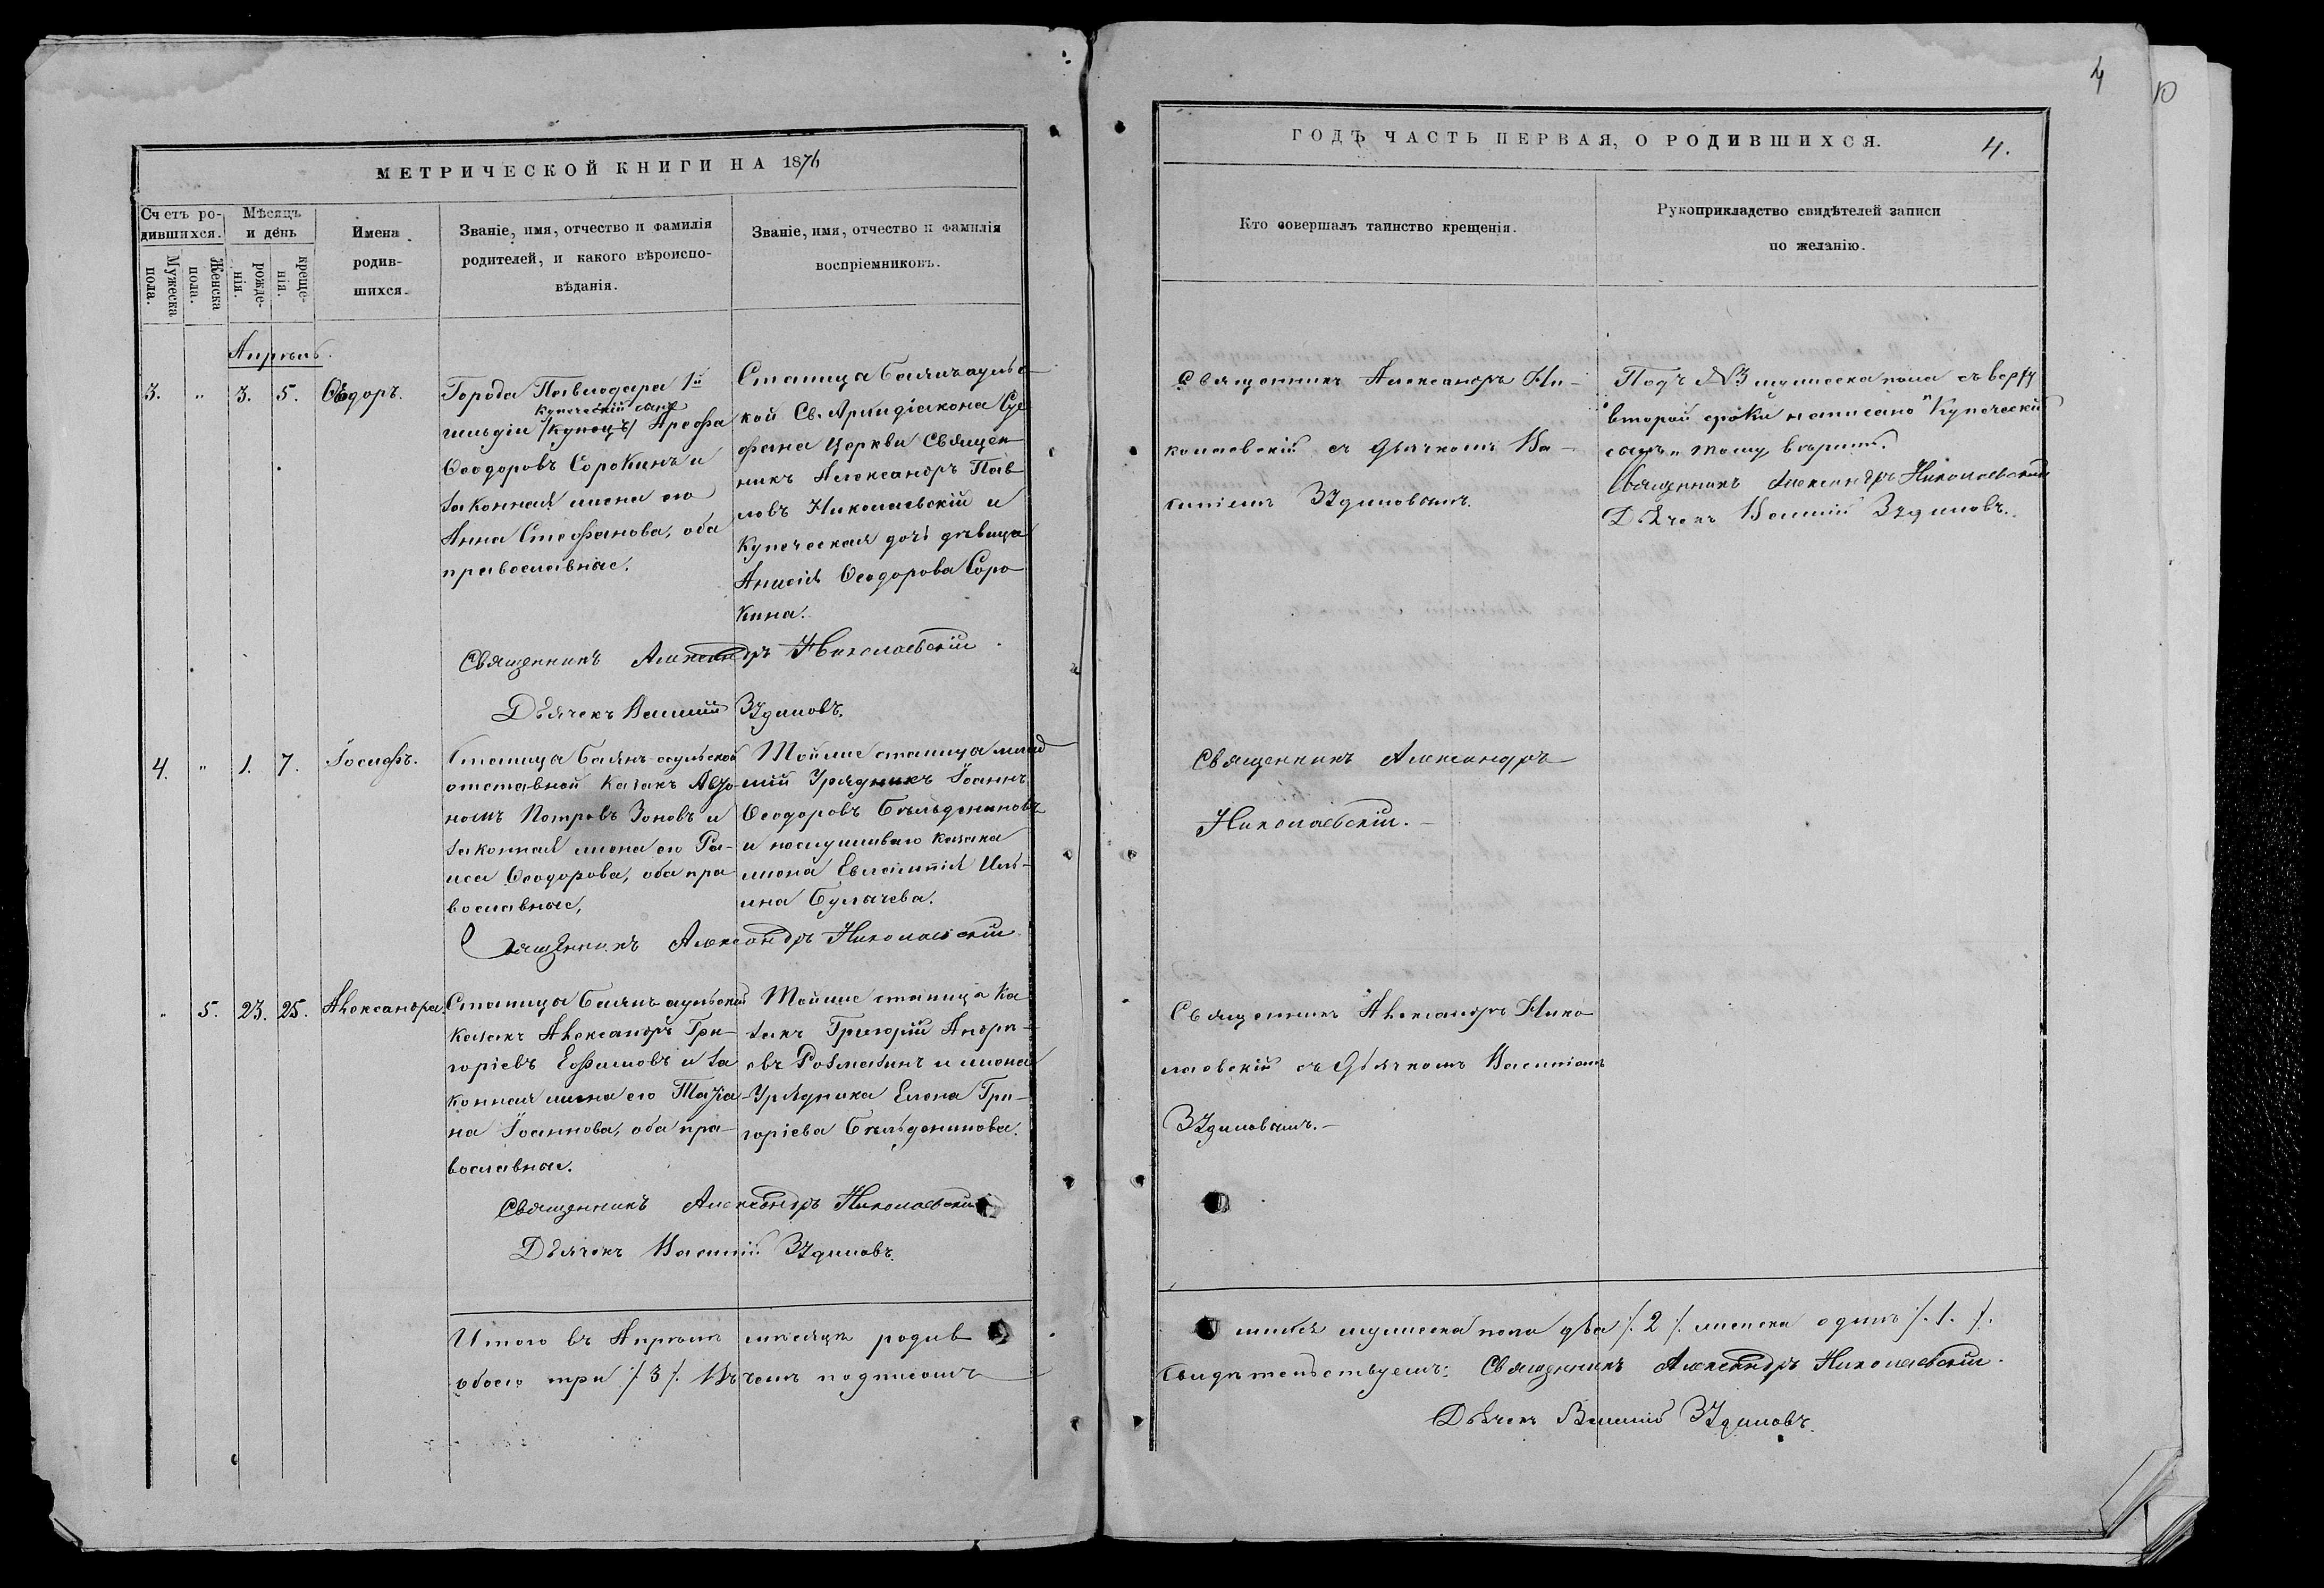 4
10
МЕТРИЧЕСКОЙ КНИГИ НА 1876
ГОДЪ ЧАСТЬ ПЕРВАЯ, О РОДИВШИХСЯ.
4.
Счетъ ро-
дившихся.
Мужеска
пола.
Женска
пола.
Мѣсяцъ
и день
рожде-
нія.
креще-
нія.
Имена
родив-
шихся.
Званіе, имя, отчество и фамилія
родителей, и какого вѣроиспо-
вѣданія.
Званіе, имя, отчество и фамилія
воспріемниковъ.
Кто совершалъ таинство крещенія.
Рукоприкладство свидѣтелей записи
по желанію.
Апрѣль.
3. " 3. 5. Ѳеодоръ.
Города Павлодара 1й
купеческій сынъ
гильдіи /купецъ/ Ареѳа
Ѳеодоровъ Сорокинъ и
законная жена его
Анна Стефанова, оба
православные.
Станица Баянъ аульс
кой Св. Архидіакона Сте
фана Церкви Священ
никъ Александръ Пав
ловъ Николаевскій и
Купеческая дочь дѣвица
Анисія Ѳеодорова Соро
кина.
Священникъ Александръ Ни-
колаевскій съ Дьячкомъ Ва-
силіемъ
Подъ №3 мужеска пола съ верху
второй строки написано "Купеческій
сынъ" тому вѣрить.
Священникъ Александръ Николаевскій
Дьячекъ Василій
Священникъ Александръ Николаевскій
Дьячекъ Василій
4. " 1. 7. Іосифъ.
Станица Баянъ-аульской
отставной казакъ Авто-
номъ Петровъ Зоновъ и
законная жена его Ра-
иса Ѳеодорова, оба пра
вославные,
Той же станица млад
шій Урядникъ Іоаннъ
Ѳеодоровъ Бѣльдениновъ
и неслуживаго казака
жена Евлампія Иль-
ина Булачева.
Священникъ Александръ
Николаевскій.
Священникъ Александръ Николаевскій
" 5. 23. 25. Александра.
Станица Баянъ аульской
Казакъ Александръ Гри-
горіевъ Ефимовъ и за
конная жена его Татіа-
на Іоаннова, оба пра-
вославные.
Той же станица Ка
закъ Григорій Андре-
евъ и жена
Урядника Елена Гри-
горіева Бѣльденинова.
Священникъ Александръ Нико
лаевскій съ Дьячкомъ Василіемъ
Священникъ Александръ Николаевскій
Дьячекъ Василій
Итого въ Апрѣлѣ мѣсяцѣ родив
шихся мужеска пола два /. 2 /. женска одинъ /. 1. /.
обоего три /. 3 /. Въ чемъ подписомъ
свидѣтельствуемъ: Священникъ Александръ Николаевскій.
Дьячекъ Василій